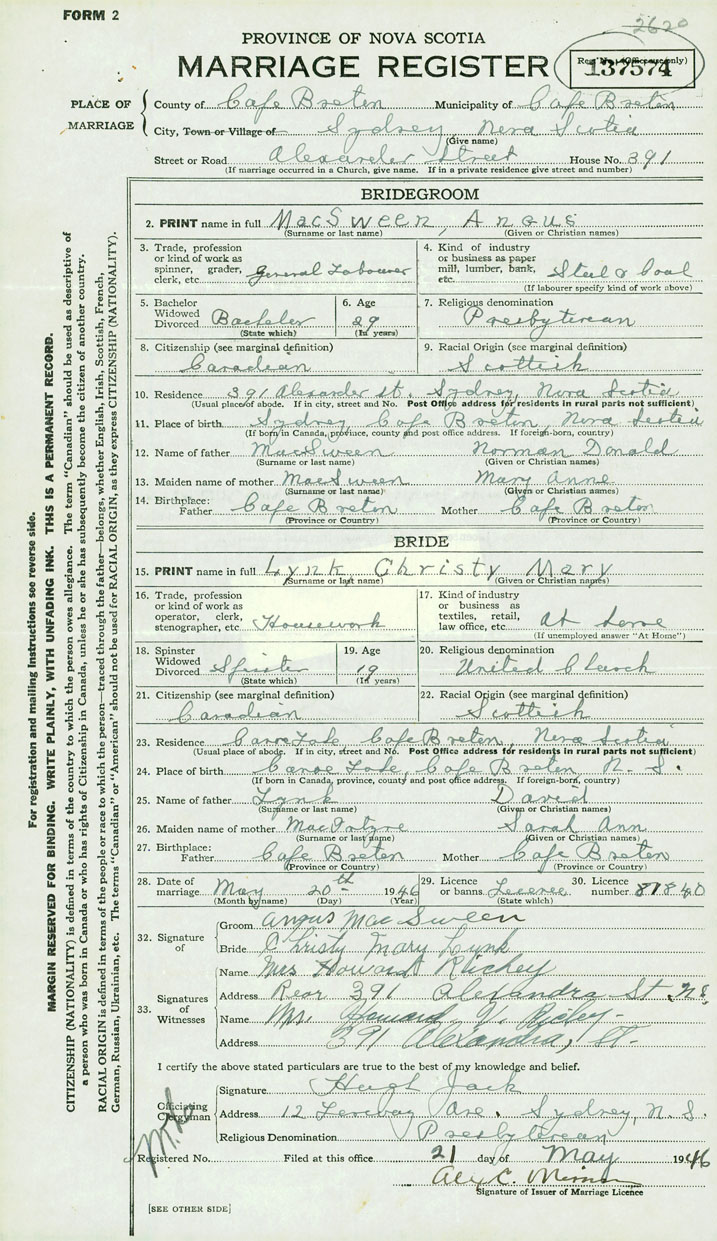 FORM 2
2620
PROVINCE OF NOVA SCOTIA
MARRIAGE REGISTER
Reg. No. (Office use only)
137574
PLACE OF MARRIAGE
County of Cape Breton Municipality of Cape Breton
City, Town or Village of Sydney, Nova Scotia
(Give name)
Street or Road Alexander Street House No. 391
(If marriage occurred in a Church, give name. If in a private residence give street and number)
BRIDEGROOM
2. PRINT name in full MacSween, Angus
(Surname or last name) (Given or Christian names)
3. Trade, profession or kind of work as spinner, grader, clerk, etc. General Labourer
4. Kind of industry or business as paper mill, lumber, bank, etc. Steel & Coal
(If labourer specify kind of work above)
5. Bachelor Widowed Divorced Bachelor
(State which)
6. Age 29
(In years)
7. Religious denomination Presbyterian
8. Citizenship (see marginal definition) Canadian
9. Racial Origin (see marginal definition) Scottish
10. Residence 391 Alexander St. Sydney, Nova Scotia
(Usual place of abode. If in city, street and No. Post Office address for residents in rural parts not sufficient)
11. Place of birth Sydney Cape Breton, Nova Scotia
(If born in Canada, province, county and post office address. If foreign-born, country)
12. Name of father MacSween Norman Donald
(Surname or last name) (Given or Christian names)
13. Maiden name of mother MacSween Mary Anne
(Surname or last name) (Given or Christian names)
14. Birthplace: Father Cape Breton Mother Cape Breton
(Province or Country) (Province or Country)
BRIDE
15. PRINT name in full Lynk Christy Mary
(Surname or last name) (Given or Christian names)
16. Trade, profession or kind of work as operator, clerk, stenographer, etc. Housework
17. Kind of industry or business as textiles, retail, law office, etc. At home
(If unemployed answer "At Home")
18. Spinster Widowed Divorced Spinster
(State which)
19. Age 19
(In years)
20. Religious denomination United Church
21. Citizenship (see marginal definition) Canadian
22. Racial Origin (see marginal definition) Scottish
23. Residence Canoe Lake Cape Breton, Nova Scotia
(Usual place of abode. If in city, street and No. Post Office address for residents in rural parts not sufficient)
24. Place of birth Canoe Lake, Cape Breton N. S.
(If born in Canada, province, county and post office address. If foreign-born, country)
25. Name of father Lynk David
(Surname or last name) (Given or Christian names)
26. Maiden name of mother MacIntyre Sarah Ann
(Surname or last name) (Given or Christian names)
27. Birthplace: Father Cape Breton Mother Cape Breton
(Province or Country) (Province or Country)
28. Date of marriage May 20th 1946
(Month by name) (Day) (Year)
29. Licence or banns Licence
(State which)
30. Licence number 87840
32. Signature of
Groom Angus MacSween
Bride Christy Mary Lynk
33. Signatures of Witnesses
Name Mrs Howard Richey
Address Rear 391 Alexandra St N.S.
Name Mr. Howard V. Richey
Address 391 Alexandra, St.
I certify the above stated particulars are true to the best of my knowledge and belief.
Officiating Clergyman
Signature Hugh Jack
Address 12 Ave. Sydney, N. S.
Religious Denomination Presbyterian
Registered No. Filed at this office 21 day of May 1946
Alex C.
Signature of Issuer of Marriage Licence
[SEE OTHER SIDE]
For registration and mailing instructions see reverse side.
MARGIN RESERVED FOR BINDING. WRITE PLAINLY, WITH UNFADING INK. THIS IS A PERMANENT RECORD.
CITIZENSHIP (NATIONALITY) is defined in terms of the country to which the person owes allegiance. The term "Canadian" should be used as descriptive of
a person who was born in Canada or who has rights of Citizenship in Canada, unless he or she has subsequently become the citizen of another country.
RACIAL ORIGIN is defined in terms of the people or race to which the person—traced through the father—belongs, whether English, Irish, Scottish, French,
German, Russian, Ukrainian, etc. The terms "Canadian" or "American" should not be used for RACIAL ORIGIN, as they express CITIZENSHIP (NATIONALITY).